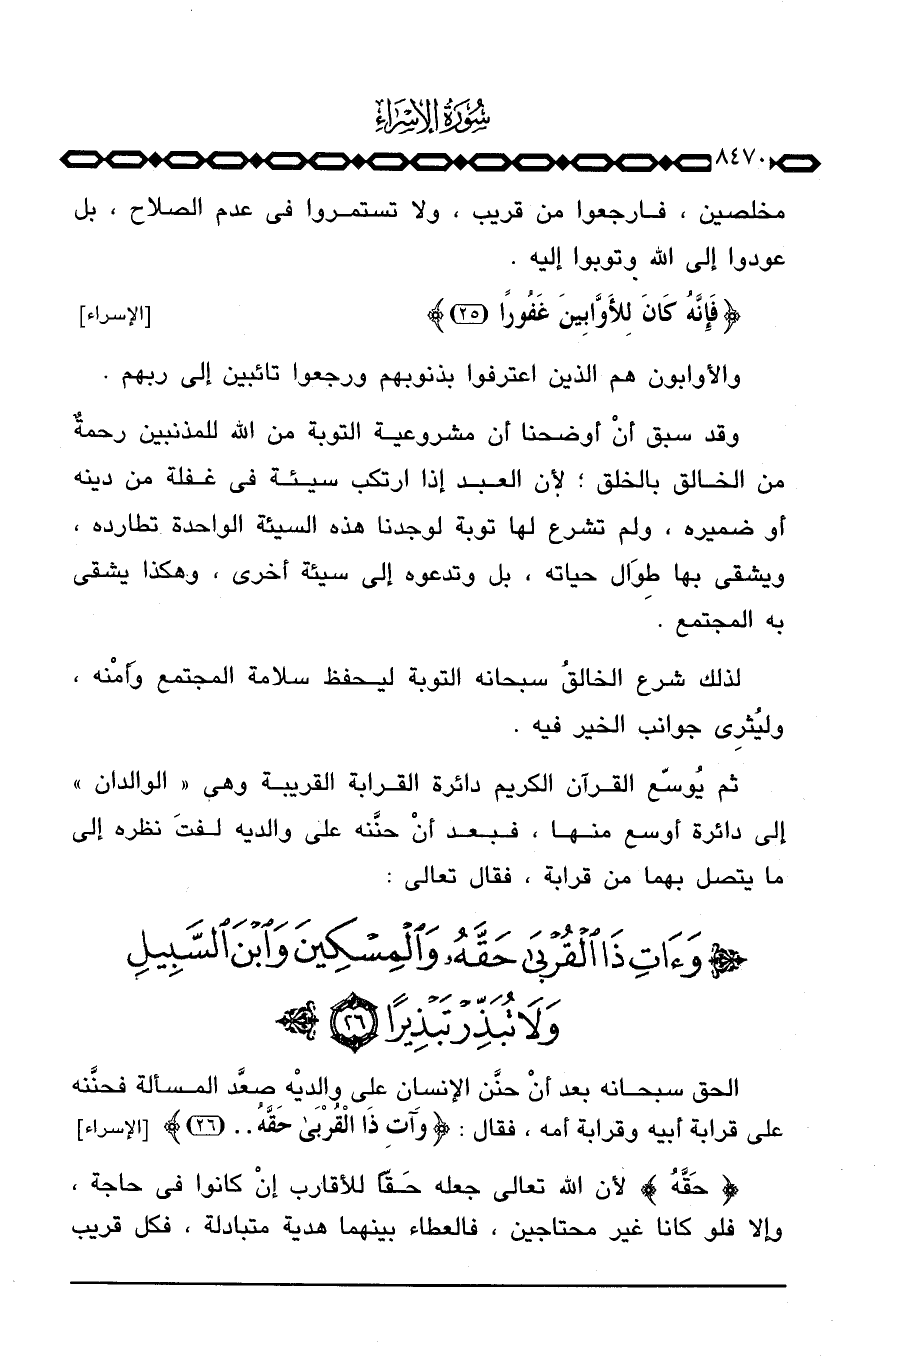 سُورَةُ الإِسْرَاءِ
٨٤٧٠
مخلصين ، فـارجعوا من قريب ، ولا تستمـروا فى عدم الصلاح ، بل
عودوا إلى الله وتوبوا إليه .
﴿ فَإِنَّهُ كَانَ لِلأَوَّابِينَ غَفُورًا (٢٥) ﴾ [الإسراء]
والأوابون هم الذين اعترفوا بذنوبهم ورجعوا تائبين إلى ربهم .
وقد سبق أنْ أوضـحنا أن مشروعيـة التوبة من الله للمذنبين رحمةٌ
من الخـالق بالخلق ؛ لأن العـبـد إذا ارتكب سيـئـة فى غـفلة من دينه
أو ضميره ، ولم تشرع لها توبة لوجدنا هذه السيئة الواحدة تطارده ،
ويشقى بها طِوَال حياته ، بل وتدعوه إلى سيئة أخرى ، وهكذا يشقى
به المجتمع .
لذلك شرع الخالقُ سبحانه التوبة ليـحفظ سلامة المجتمع وأَمْنه ،
وليُثرِى جوانب الخير فيه .
ثم يُوسّع القـرآن الكريم دائرة القـرابة القريبـة وهى « الوالدان »
إلى دائرة أوسع منـهـا ، فـبـعـد أنْ حنَّنه على والديه لـفتَ نظره إلى
ما يتصل بهما من قرابة ، فقال تعالى :
﴿ وَءَاتِ ذَا ٱلْقُرْبَىٰ حَقَّهُۥ وَٱلْمِسْكِينَ وَٱبْنَ ٱلسَّبِيلِ
وَلَا تُبَذِّرْ تَبْذِيرًا ٢٦ ﴾
الحق سبـحـانه بعد أنْ حنَّن الإنسان على والديْه صعَّد المـسـألة فحنَّنه
على قرابة أبيه وقرابة أمه ، فقال : ﴿ وَآتِ ذَا الْقُرْبَىٰ حَقَّهُ .. (٢٦) ﴾ [الإسراء]
﴿ حَقَّهُ ﴾ لأن الله تعالى جعله حَـقّاً للأقارب إنْ كانوا فى حاجة ،
وإلا فلو كانا غير محتاجين ، فالعطاء بينهما هدية متبادلة ، فكل قريب